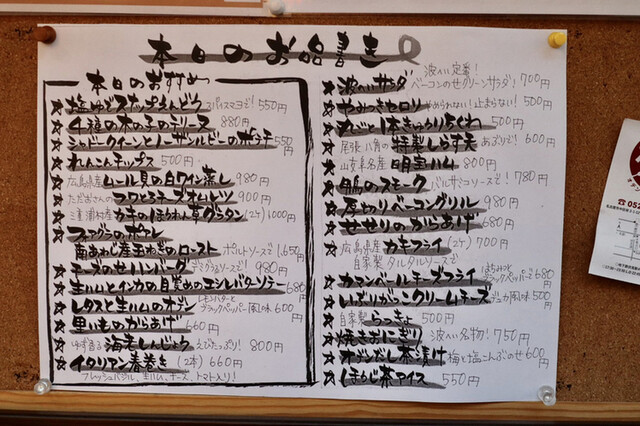 本日のお品書き
本日のおすすめ
★塩ゆでスナップえんどう スパイスマヨで! 550円
★4種の木の子のテリーヌ 880円
★シャドークイーンとノーザンルビーのポテチ 550円
★れんこんチップス 500円
★広島県産ムール貝の白ワイン蒸し 980円
★ただおさんのフワとろチーズオムレツ 900円
★三重浦村産カキのほうれん草グラタン(2ケ) 1000円
★フォアグラのポワレ
南あわじ産玉ねぎのロースト ポルトソースで 1,650円
★チーズのせハンバーグ デミグラソースで! 980円
★生ハムとインカの目覚めのエシレバターソテー 680円
★レタスと生ハムのオデン レモンバターとブラックペッパー風味 600円
★里いものからあげ 660円
★ゆず香る海老しんじょう えびたっぷり! 800円
★イタリアン春巻き (2本) 660円
フレッシュバジル、生ハム、チーズ、トマト入り!
★波へいサラダ 波へい定番! ベーコンのせグリーンサラダ! 700円
★やみつきキャロリ やめられない!止まらない! 500円
★丸ごと1本きゅうりちくわ 500円
★尾張八百の特製しらす天 あぶりで! 600円
★山安阜名産 明宝ハム 800円
★鴨のスモーク バルサミコソースで! 780円
★厚切りベーコングリル 980円
★せせりのからあげ 680円
★広島県産カキフライ (2ケ) 700円
自家製タルタルソースで
★カマンベールチーズフライ はちみつとブラックペッパーで 680円
★いぶりがっこクリームチーズ デュカ風味 500円
★自家製らっきょ 500円
★焼きおにぎり 波へい名物! 750円
★オジンだし茶漬け 梅と塩こんぶのせ 600円
★ほうじ茶アイス 550円
☎052